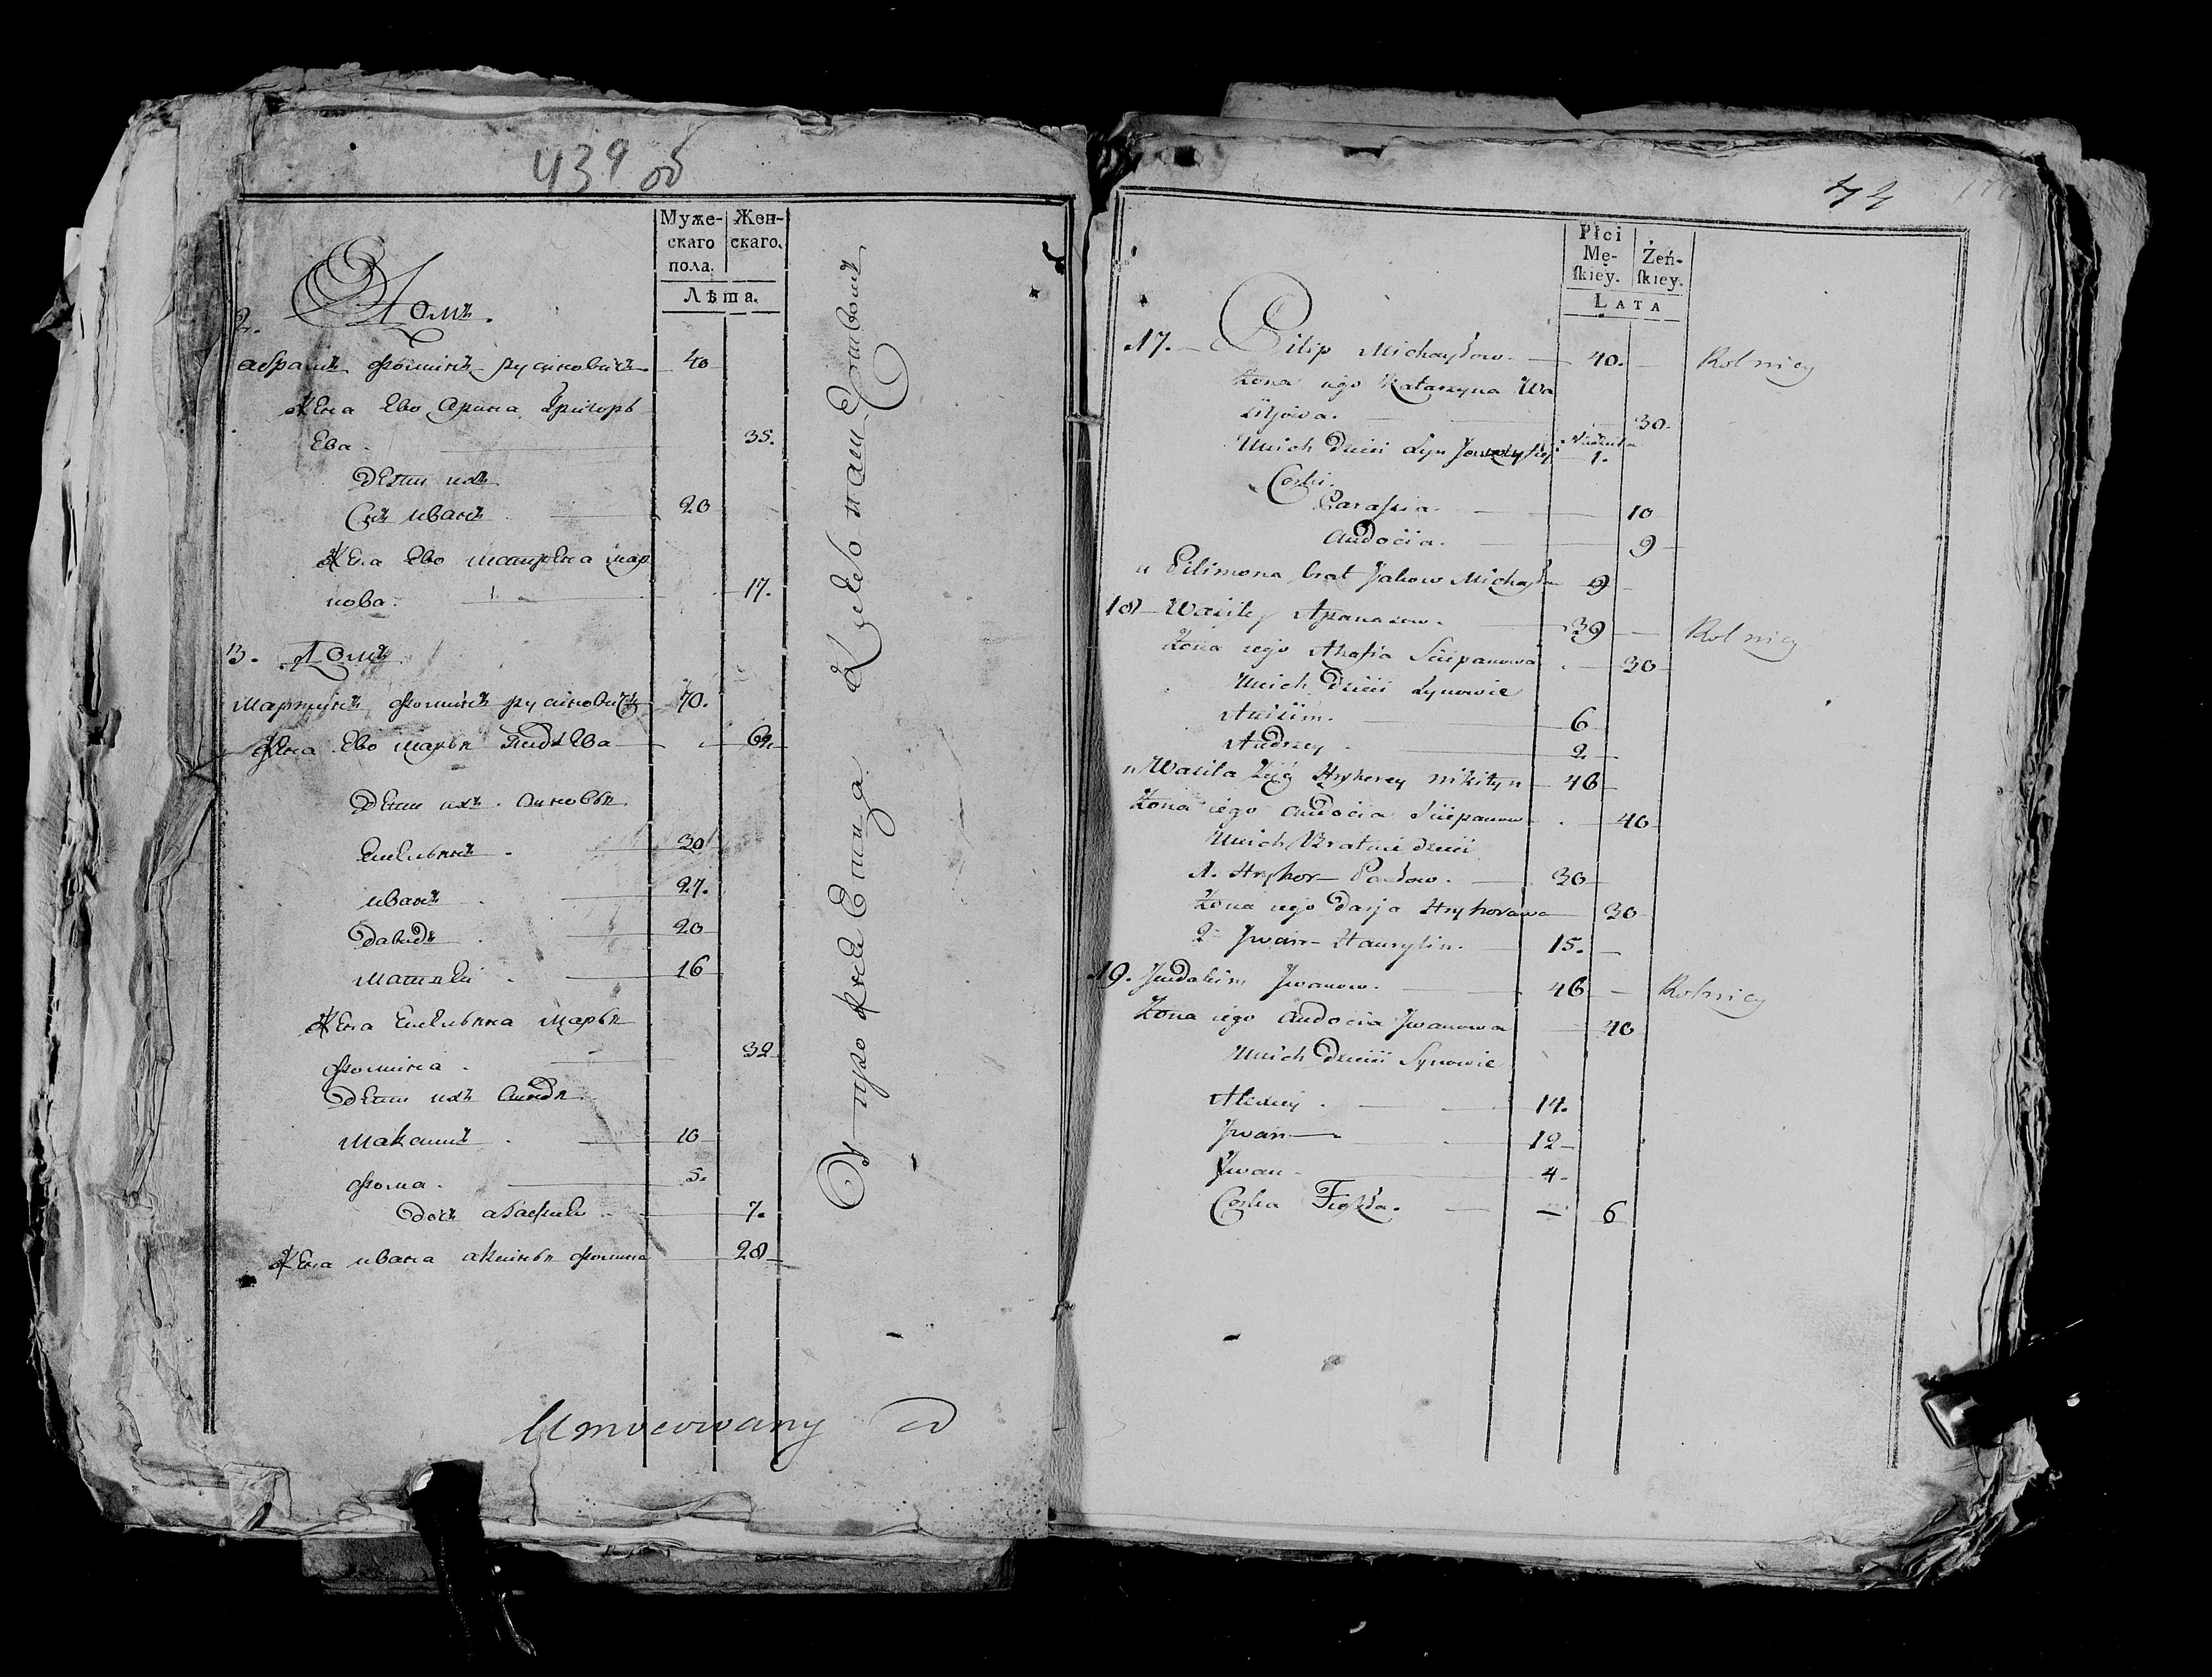 439 об
Муже-
скаго
пола.
Жен-
скаго.
Лѣта.
2. Домъ.
абрамъ фоминъ русиновичъ 40
жена Ево Орина Григорь
Ева. 35.
дети ихъ
Снъ иванъ 20
жена Ево матрена мар
нова. 17.
3. Домъ
мартинъ фоминъ русиновичъ 70.
жена Ево марья
дети ихъ. сыновья.
Емельянъ. 30
иванъ. 27.
Давидъ. 20
матвей. 16
жена Емельяна марья
фомина. 32
дети ихъ
макъсимъ. 10
фома. 5.
дочь 7.
жена ивана аксинья фомина 28
Umocowany
44
Płci
Mę-
skiey.
Żeń-
skiey.
LATA
17. Filip Michayłow. 40. Rolnicy
Żona iego Katarzyna Wa
siljowa. 30.
Unich dzieci Syn 1.
Corki.
Parasia. 10
Audocia. 9
u Filimona brat Jakow Michayłow 9
18 Wasiley Apanasow. 39 Rolnicy
Żona iego Akasia Sciepanowa 30
Unich dzieci Synowie
Anisim. 6
Andrzey. 2
u Wasila Zięć Hryhorey Nikityn 46
Żona iego Audocia Sciepanow. 40
Unich Bratnie dzieci
1. Hryhor Pawłow. 30
Żona iego Darja Hryhorowa 30
2 Jwan Hawrylin. 15.
19. Jwanow. 46 Rolnicy
Żona iego Audocia Jwanowa 40
Unich dzieci Synowie
Alexiey. 14.
Jwan 12
Jwan 4.
Corka Fiokła. 6